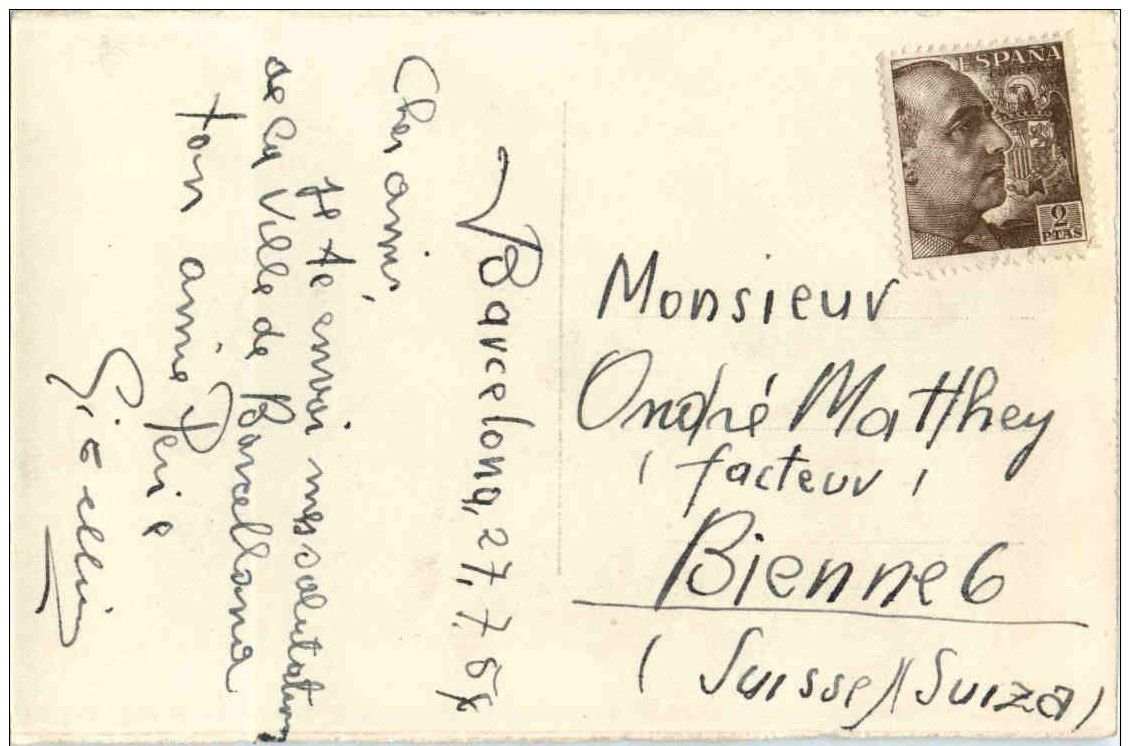 Barcelona, 27, 7. 58
Cher ami.
Je te envoi mes salutations
de la Ville de Barcellona
ton amie
ESPAÑA
2
PTAS
Monsieur
André Matthey
( facteur )
Bienne 6
( Suisse)(Suiza)